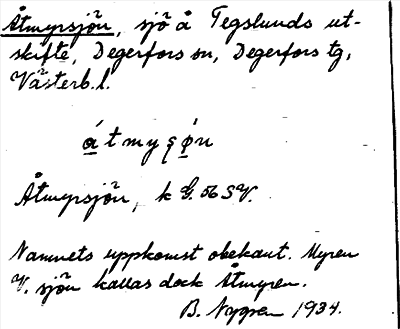 Åtmyrsjön, sjö å Tegslunds ut-
skifte, Degerfors sn, Degerfors tg,
Västerb. l.
átmyȿǿn
Åtmyrsjön, k G. 56 SV.
Namnets uppkomst obekant. Myren
V. sjön kallas dock Åtmyren.
B. Nygren 1934.